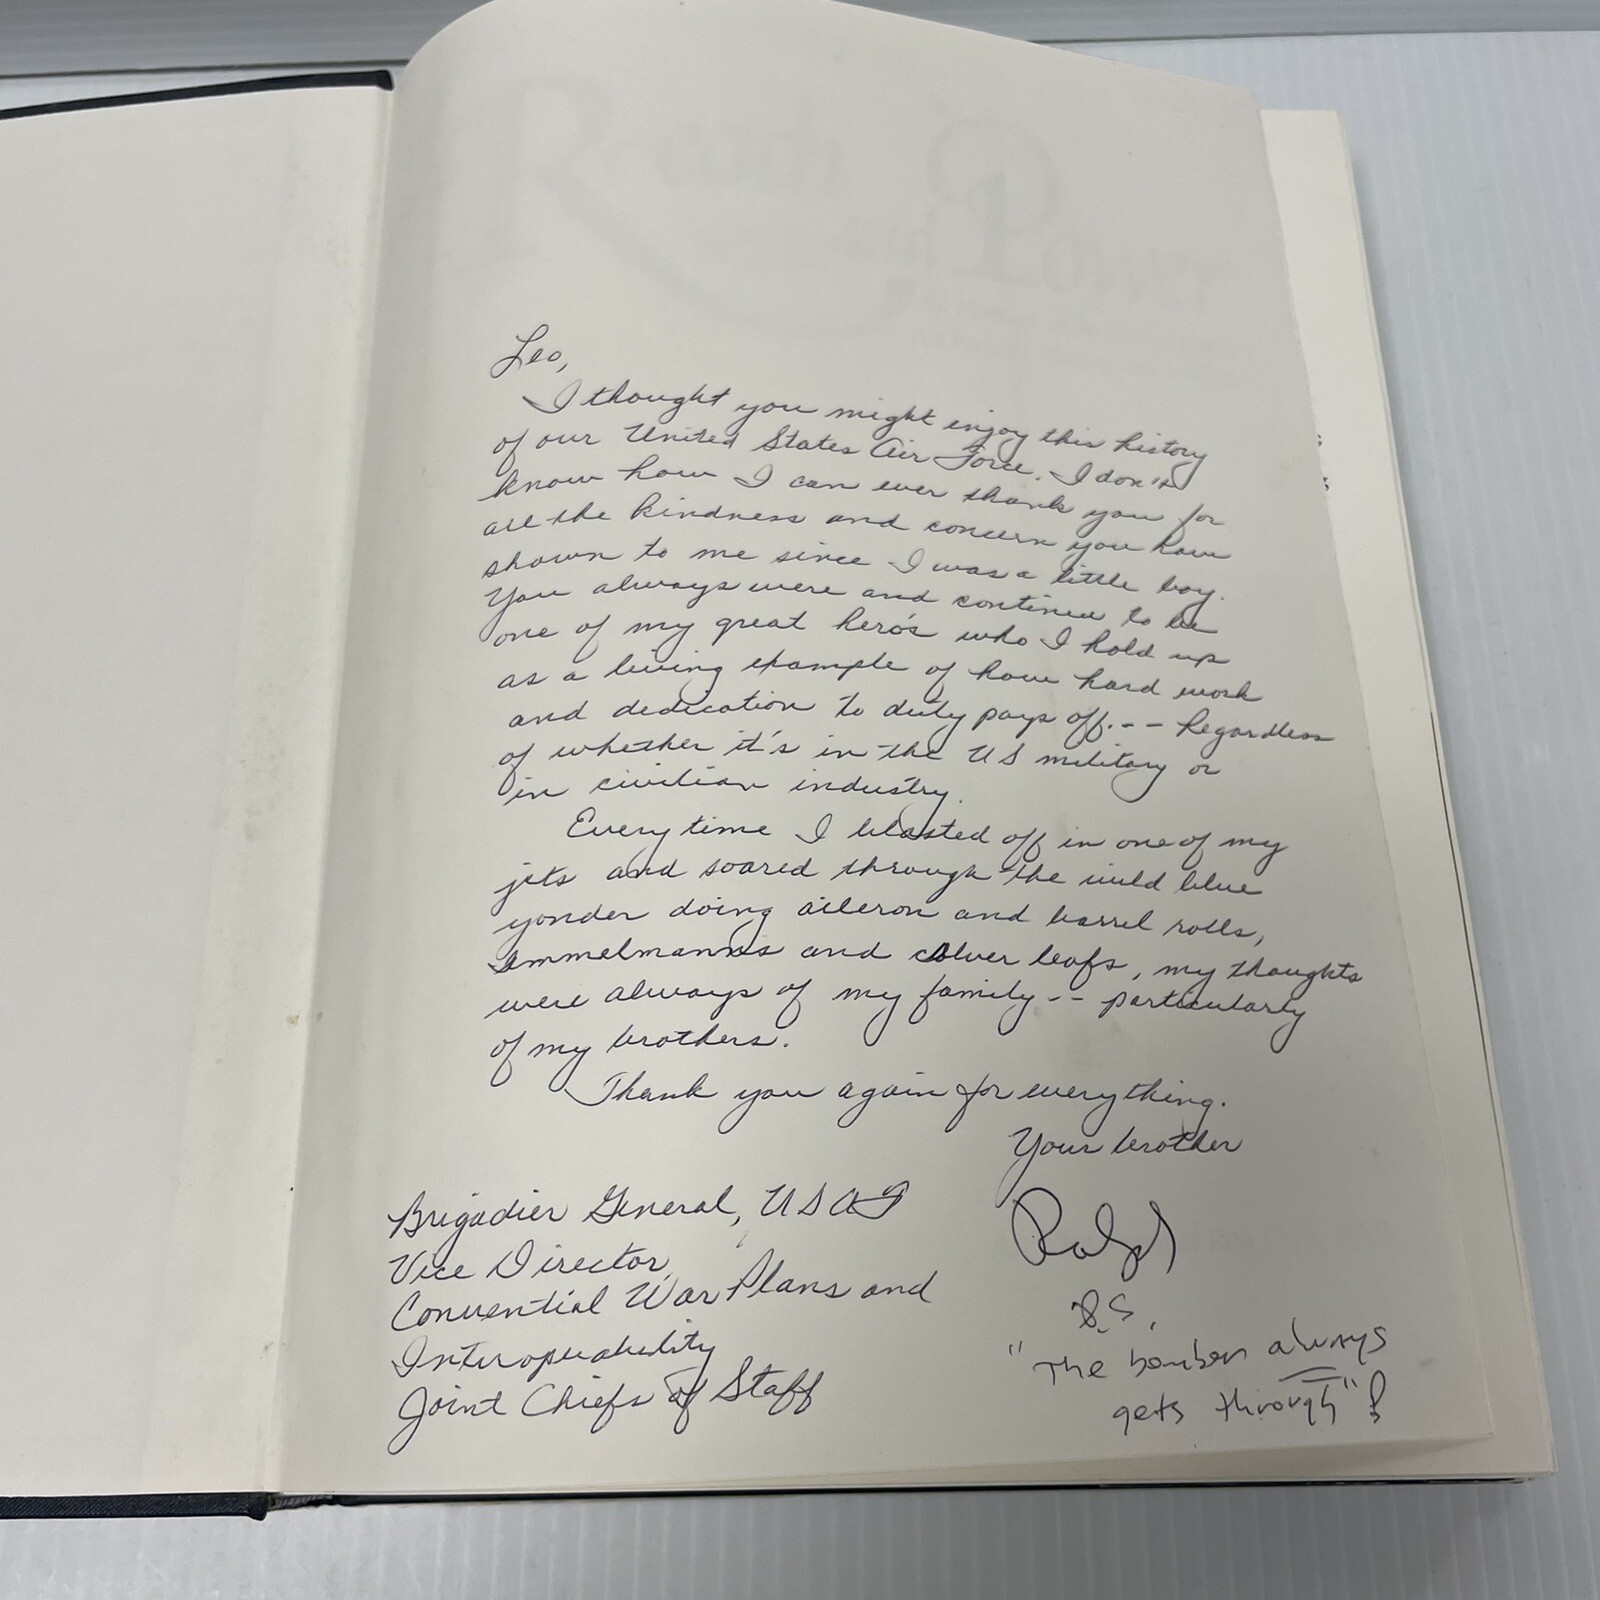 Leo,
I thought you might enjoy this history
of our United States Air Force. I don't
know how I can ever thank you for
all the kindness and concern you have
shown to me since I was a little boy.
You always were and continue to be
one of my great hero's who I hold up
as a living example of how hard work
and dedication to duty pays off. -- Regardless
of whether it's in the US military or
in civilian industry.
Every time I blasted off in one of my
jets and soared through the wild blue
yonder doing aileron and barrel rolls,
Immelmanns and clover leafs, my thoughts
were always of my family -- particularly
of my brothers.
Thank you again for everything.
Your brother
Ralph
P.S.
"The bomber always
gets through"!
Brigadier General, USAF
Vice Director,
Convential War Plans and
Interoperability
Joint Chiefs of Staff